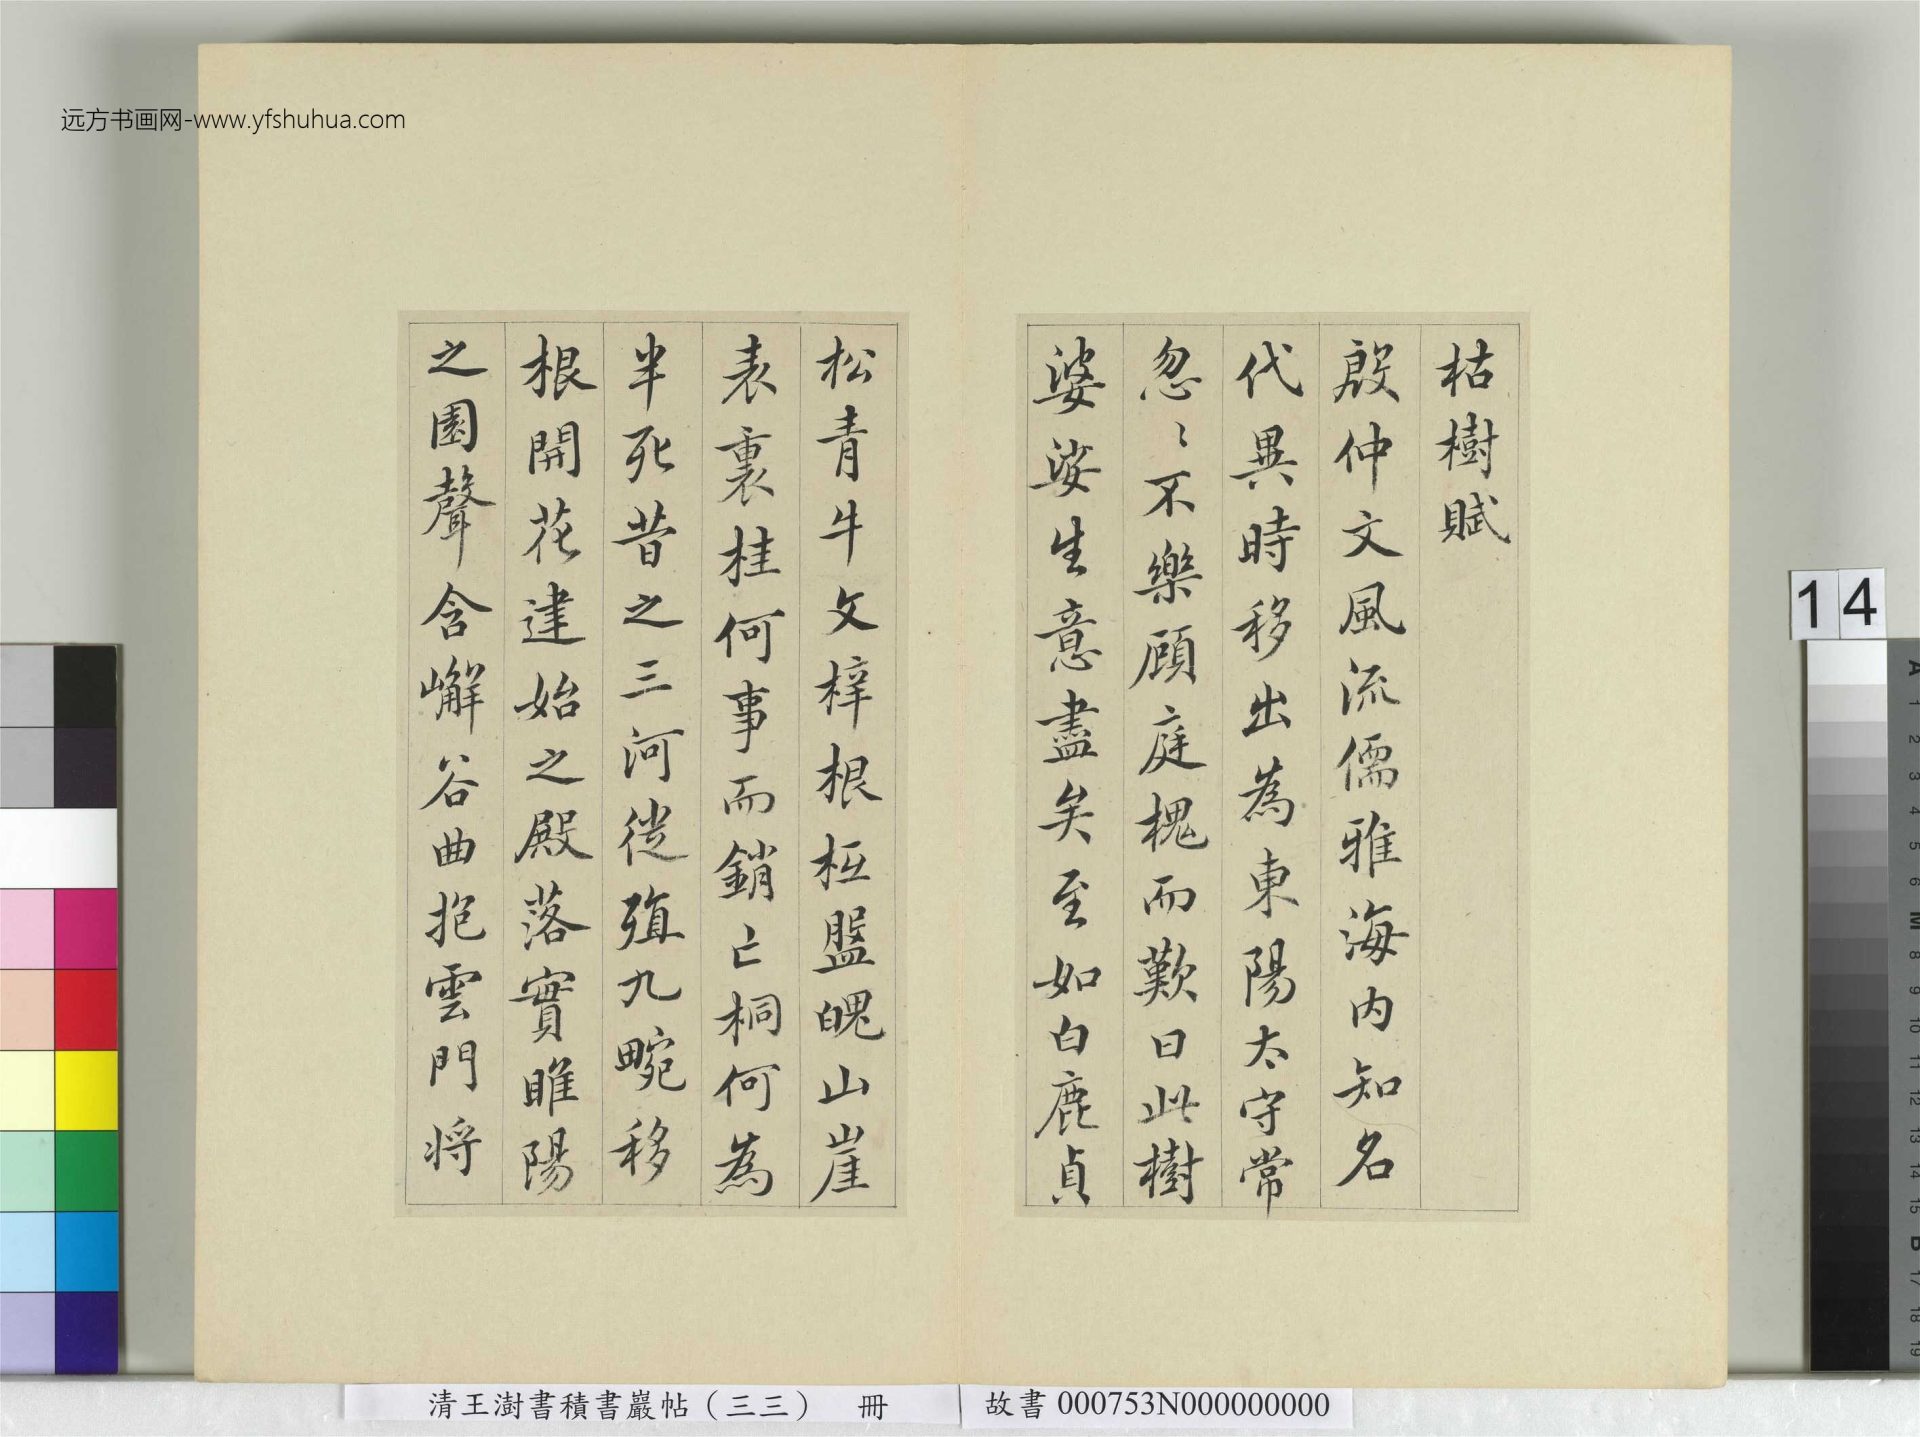 远方书画网-www.yfshuhua.com
枯樹賦
殷仲文風流儒雅海内知名
代異時移出為東陽太守常
忽〻不樂顧庭槐而歎曰此樹
婆娑生意盡矣至如白鹿貞
松青牛文梓根柢盤魄山崖
表裏桂何事而銷亡桐何為
半死昔之三河徙殖九畹移
根開花建始之殿落實睢陽
之園聲含嶰谷曲抱雲門将
14
清王澍書積書巖帖（三三） 冊
故書 000753N000000000
A
1
2
3
4
5
6
M
8
9
10
11
12
13
14
15
B
17
18
19